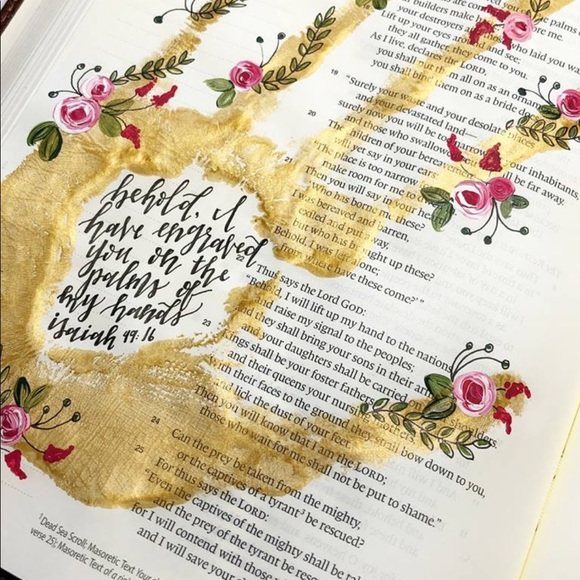 palms
builders make
your destroyers
Lift up your eyes around and see;
they all gather, they come to you.
As I live, declares the LORD,
you shall put them all on as an
you shall bind them on as a bride
19 "Surely your waste and your desolate places
and your devastated land—
surely now you will be too narrow your inhabitants,
and those who swallowed be far away.
20 The children of your bereavement
will yet say in your
"The place is too narrow
make room for me to
21 Then you will say in your
'Who has borne me these?
I was bereaved and barren,
exiled and put away,
but who has brought up these?
Behold, I was left alone;
from where have these come?'"
behold, I
have engraved
you on the
palms of
my hands
isaiah 49:16
22 Thus says the Lord GOD:
"Behold, I will lift up my hand to the nations,
and raise my signal to the peoples;
and they shall bring your sons in their
and your daughters shall be carried on
23 Kings shall be your foster fathers,
and their queens your nursing mothers.
With their faces to the ground they shall bow down to you,
and lick the dust of your feet.
Then you will know that I am the LORD;
those who wait for me shall not be put to shame."
24 Can the prey be taken from the mighty,
or the captives of a tyrant³ be rescued?
25 For thus says the LORD:
"Even the captives of the mighty shall be
and the prey of the tyrant be rescued,
for I will contend with those
and I will save your
¹ Dead Sea Scroll; Masoretic Text Your
verse 25); Masoretic Text of a